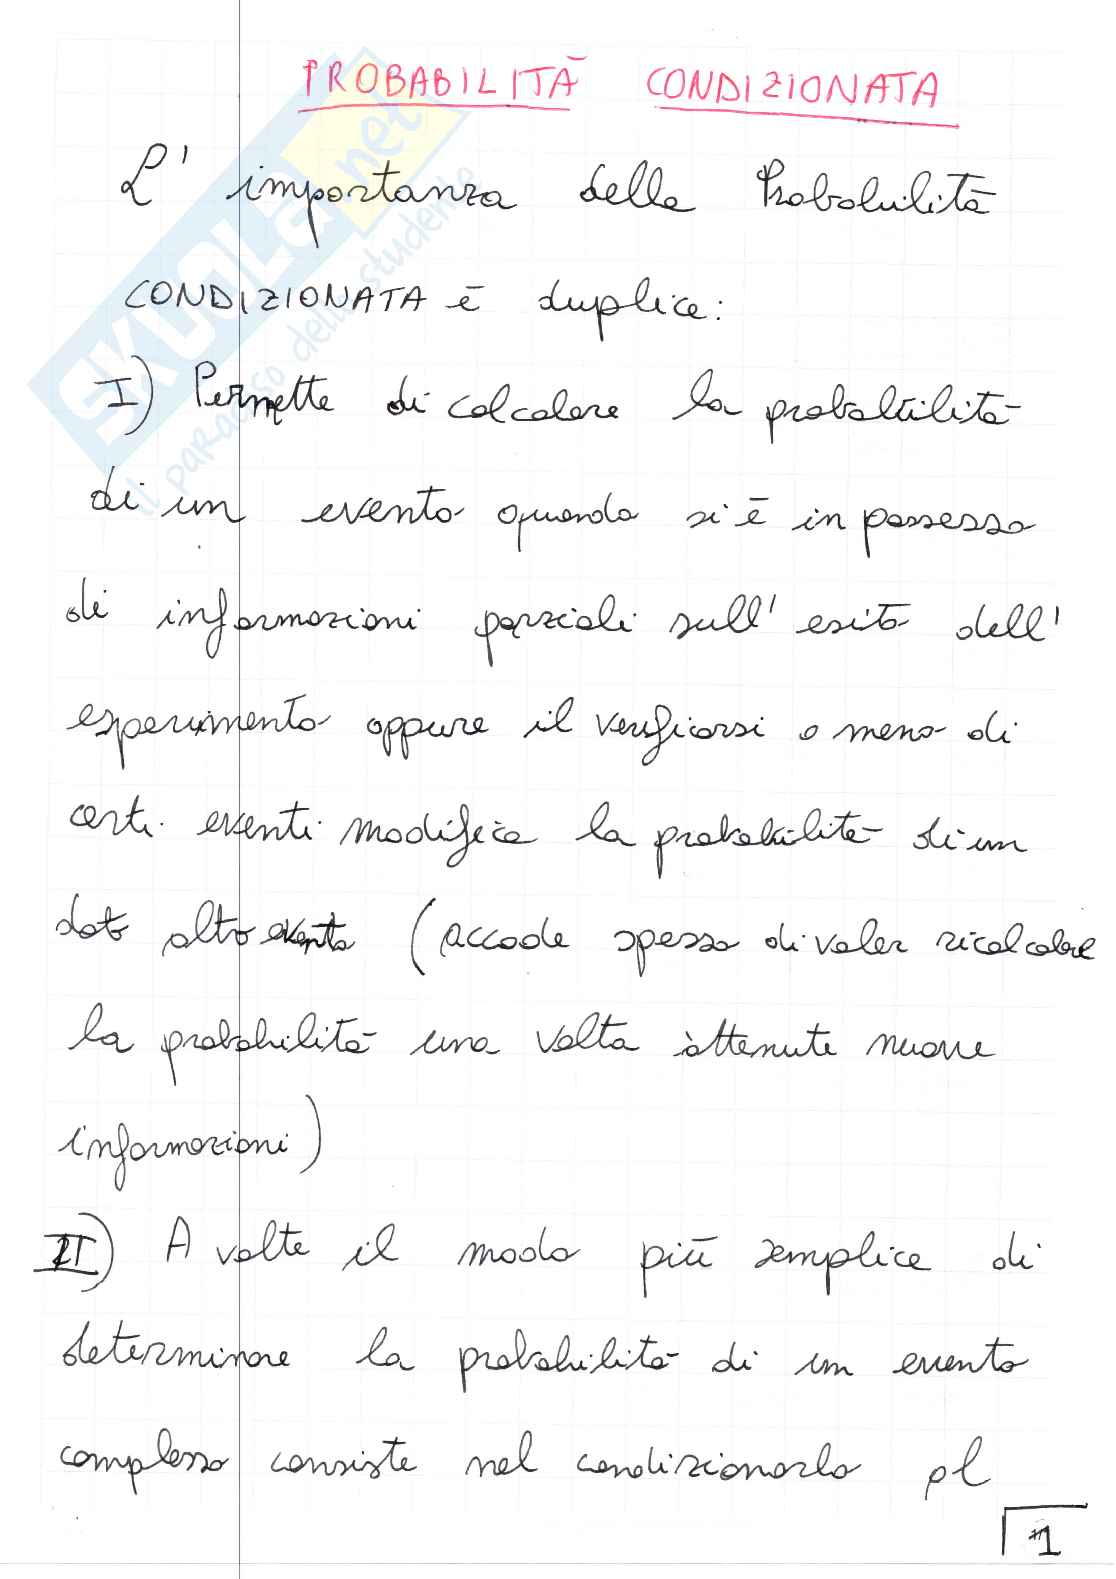 PROBABILITÀ CONDIZIONATA
L'importanza della Probabilità
CONDIZIONATA è duplice:
I) Permette di calcolare la probabilità
di un evento quando si è in possesso
di informazioni parziali sull'esito dell'
esperimento oppure il verificarsi o meno di
certi eventi modifica la probabilità di un
dato altro evento (accade spesso di voler ricalcolare
la probabilità una volta ottenute nuove
informazioni)
II) A volte il modo più semplice di
determinare la probabilità di un evento
complesso consiste nel condizionarlo al
1
SKUOLA.net
il paradiso dello studente